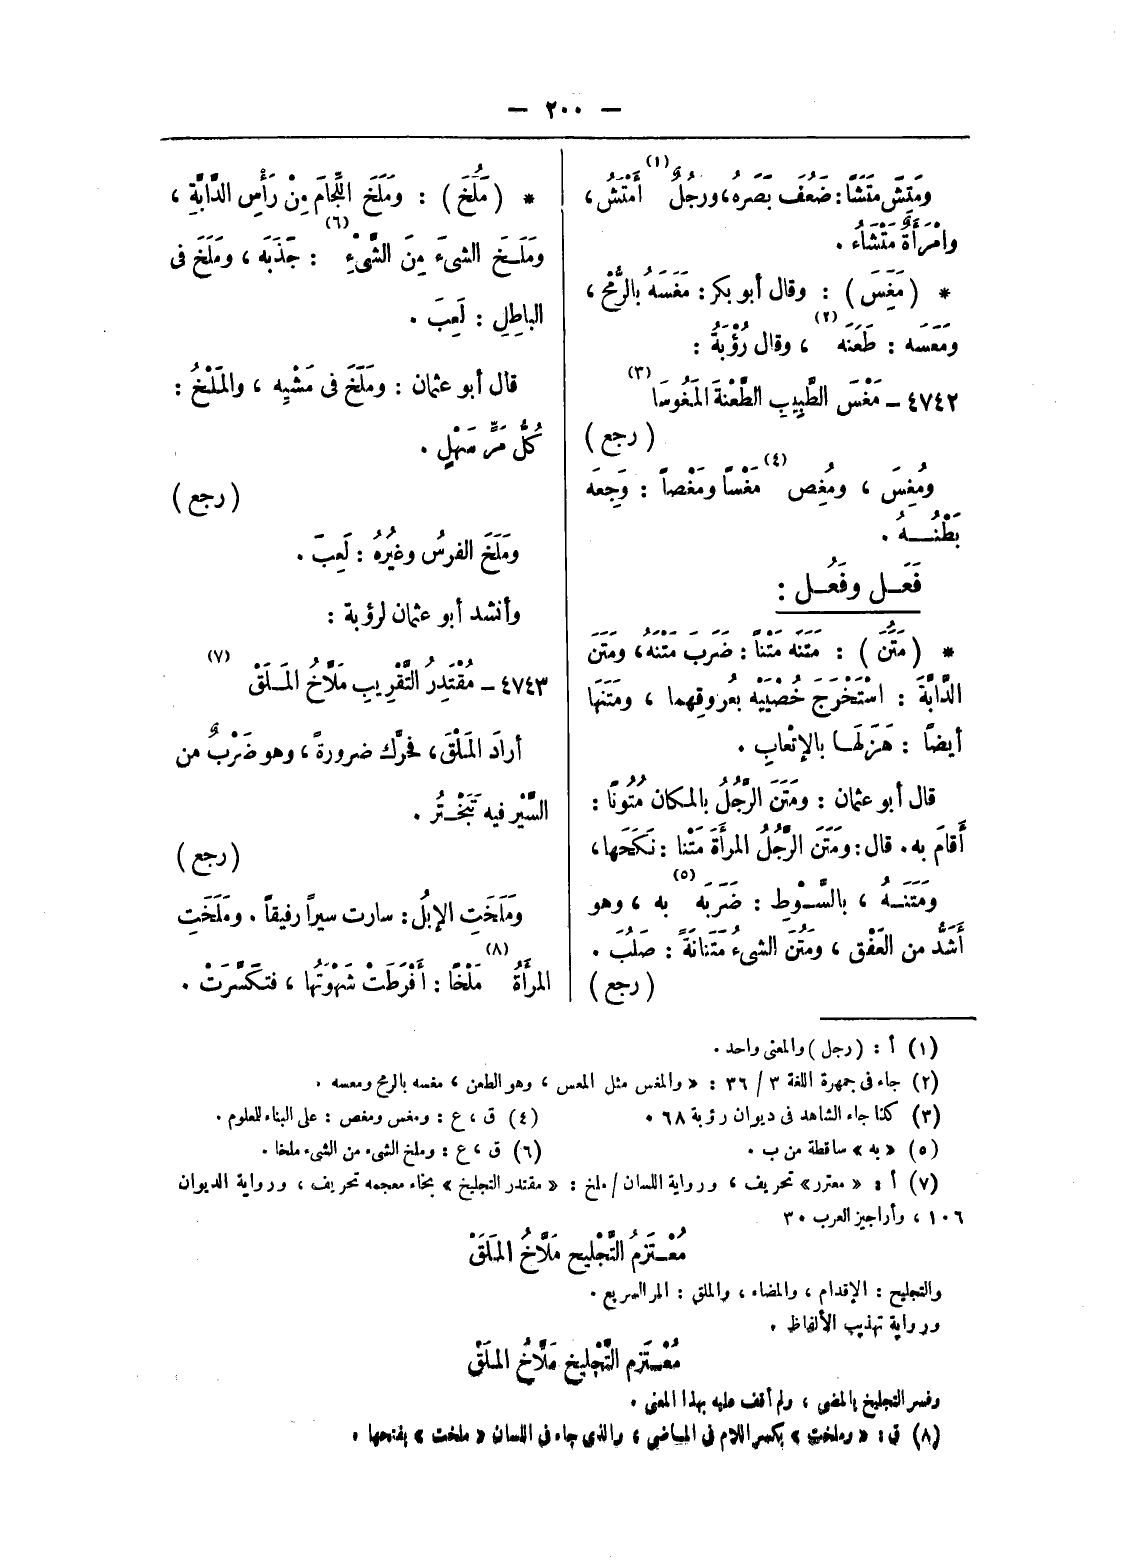 — ٢٠٠ —
ومَتِشَ مَتَشًا: ضَعُفَ بَصَرُه، ورجلٌ (١) أَمْتَشُ،
وامْرَأَةٌ مَتْشَاءُ .
* ( مَغَسَ ) : وقال أبو بكر : مَغَسَهُ بالرُّمْحِ ،
ومَعَسَه : طَعَنَه (٢) ، وقال رُؤْبَةُ :
٤٧٤٢ ـ مَغْسَ الطَّبِيبِ الطَّعْنَةَ المَغُوسَا (٣)
( رجع )
ومُغِسَ ، ومُغِص (٤) مَغْسًا ومَغْصاً : وَجِعَه
بَطْنُــهُ .
فَعَـل وفَعُـل :
* ( مَتُنَ ) : مَتَنَه مَتْناً : ضَرَبَ مَتْنَهُ ، ومَتَنَ
الدَّابَّةَ : اسْتَخْرَجَ خُصْيَيْه بعُروقِهما ، ومَتَنَهَا
أيضًا : هَزَلَهـا بالإِتْعابِ .
قال أبو عثمان : ومَتَنَ الرَّجُلُ بالمكان مُتُونًا :
أَقامَ به . قال : ومَتَنَ الرَّجُلُ المرأَةَ مَتْنا : نَكَحَها ،
ومَتَنَــهُ ، بالسَّــوْطِ : ضَرَبَه (٥) به ، وهو
أَشَدُّ من العَفْق ، ومَتُنَ الشىءُ مَتَانَةً : صَلُبَ .
( رجع )
* ( مَلُخَ ) : ومَلَخَ اللِّجامَ مِنْ رَأْسِ الدَّابَّةِ ،
ومَلَـخَ الشىءَ مِنَ الشَّىْءِ (٦) : جَذَبَه ، ومَلَخَ فى
الباطِلِ : لَعِبَ .
قال أبو عثمان : ومَلَخَ فى مَشْيِه ، والمَلْخُ :
كُلُّ مَرٍّ سَهْلٍ .
( رجع )
ومَلَخَ الفرسُ وغيُرهُ : لَعِبَ .
وأنشد أبو عثمان لرؤبة :
٤٧٤٣ ـ مُقْتَدِرُ التَّقْرِيبِ مَلَّاخُ المَـلَقْ (٧)
أرادَ المَلْقَ ، فحرَّك ضرورةً ، وهو ضَرْبٌ من
السَّيْر فيه تَبَخْـتُر .
( رجع )
ومَلَخَتِ الإبلُ : سارت سيراً رفيقاً . ومَلَخَتِ
المرأَةُ (٨) مَلْخًا : أَفْرَطَتْ شَهْوَتُها ، فتكَسَّرَتْ .
(١) أ : ( رجل ) والمعنى واحد .
(٢) جاء فى جمهرة اللغة ٣ / ٣٦ : « والمغس مثل المعس ، وهو الطعن ، مغسه بالرمح ومعسه .
(٣) كذا جاء الشاهد فى ديوان رؤبة ٦٨ . (٤) ق ، ع : ومغس ومغص : على البناء للعلوم .
(٥) « به » ساقطة من ب . (٦) ق ، ع : وملخ الشىء من الشىء ملخا .
(٧) أ : « معترر » تحريف ، ورواية اللسان / ملخ : « مقتدر التجليخ » بخاء معجمه تحريف ، ورواية الديوان
١٠٦ ، وأراجيز العرب ٣٠
مُعْـتَزمُ التَّجْلِيح مَلَّاخُ المَلَقْ
والتجليح : الإقدام ، والمضاء ، والملق : المر السريع .
ورواية تهذيب الألفاظ .
مُعْـتَزم التَّجْلِيخ مَلَّاخُ المَلَقْ
وفسر التجليخ بالمضى ، ولم أقف عليه بهذا المعنى .
(٨) ق : « وملخت » بكسر اللام فى الماضى ، والذى جاء فى اللسان « ملخت » بفتحها .